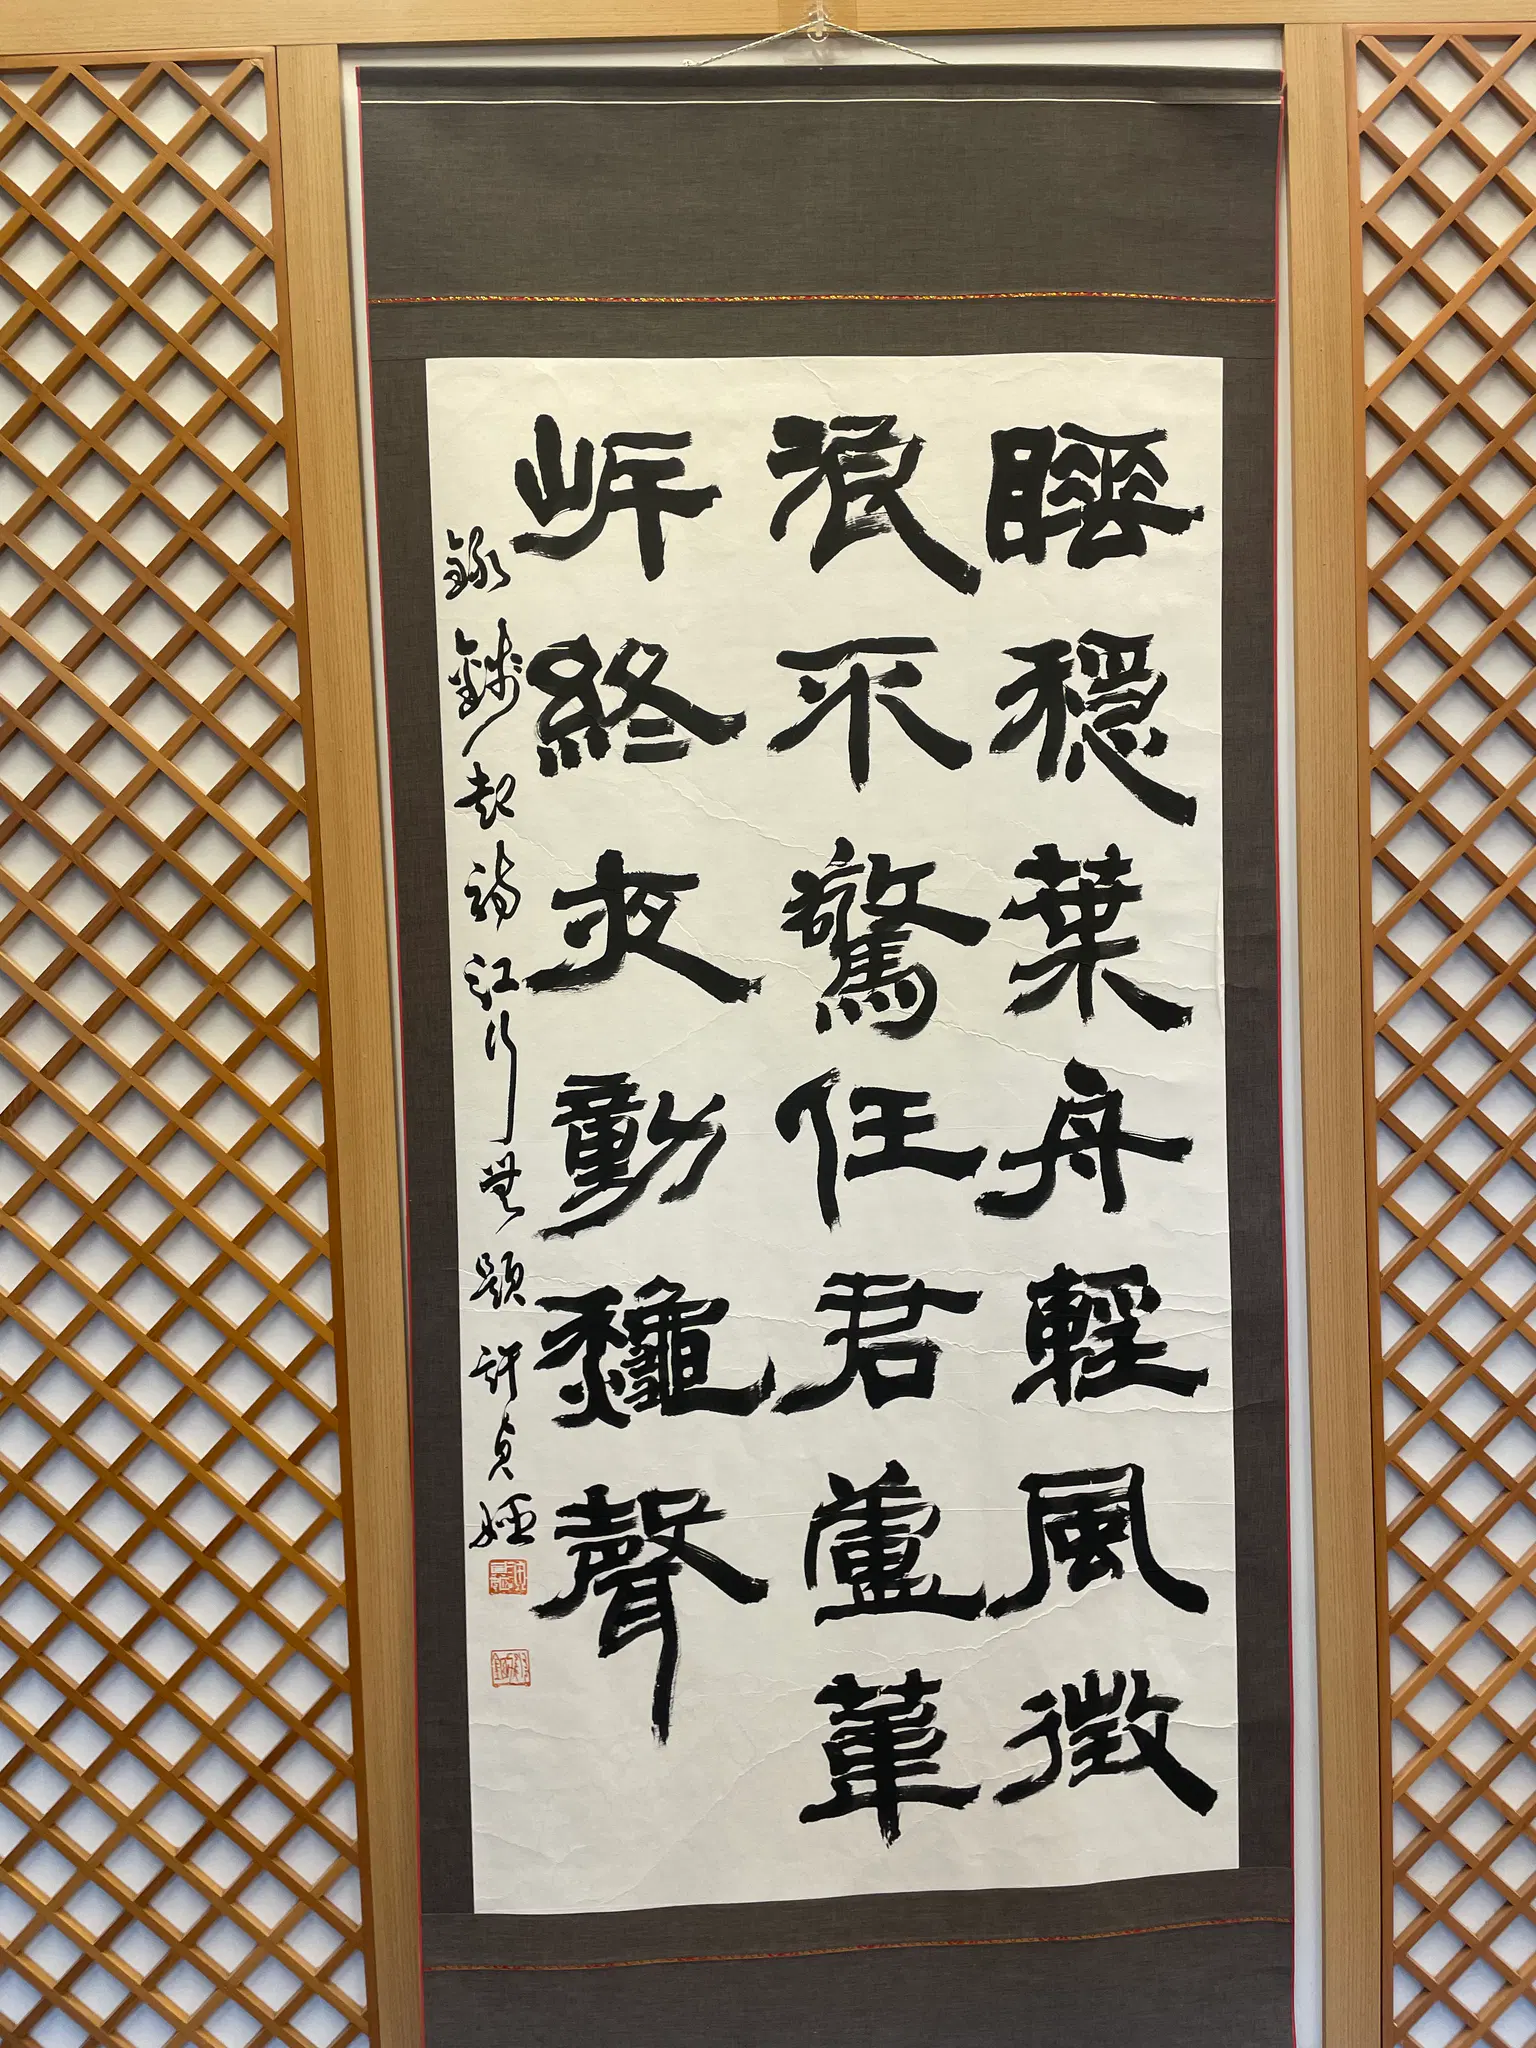 睡穩葉舟輕風微
浪不驚任君蘆葦
岸終夜動龝聲
錄錢起詩江行無題 許貞